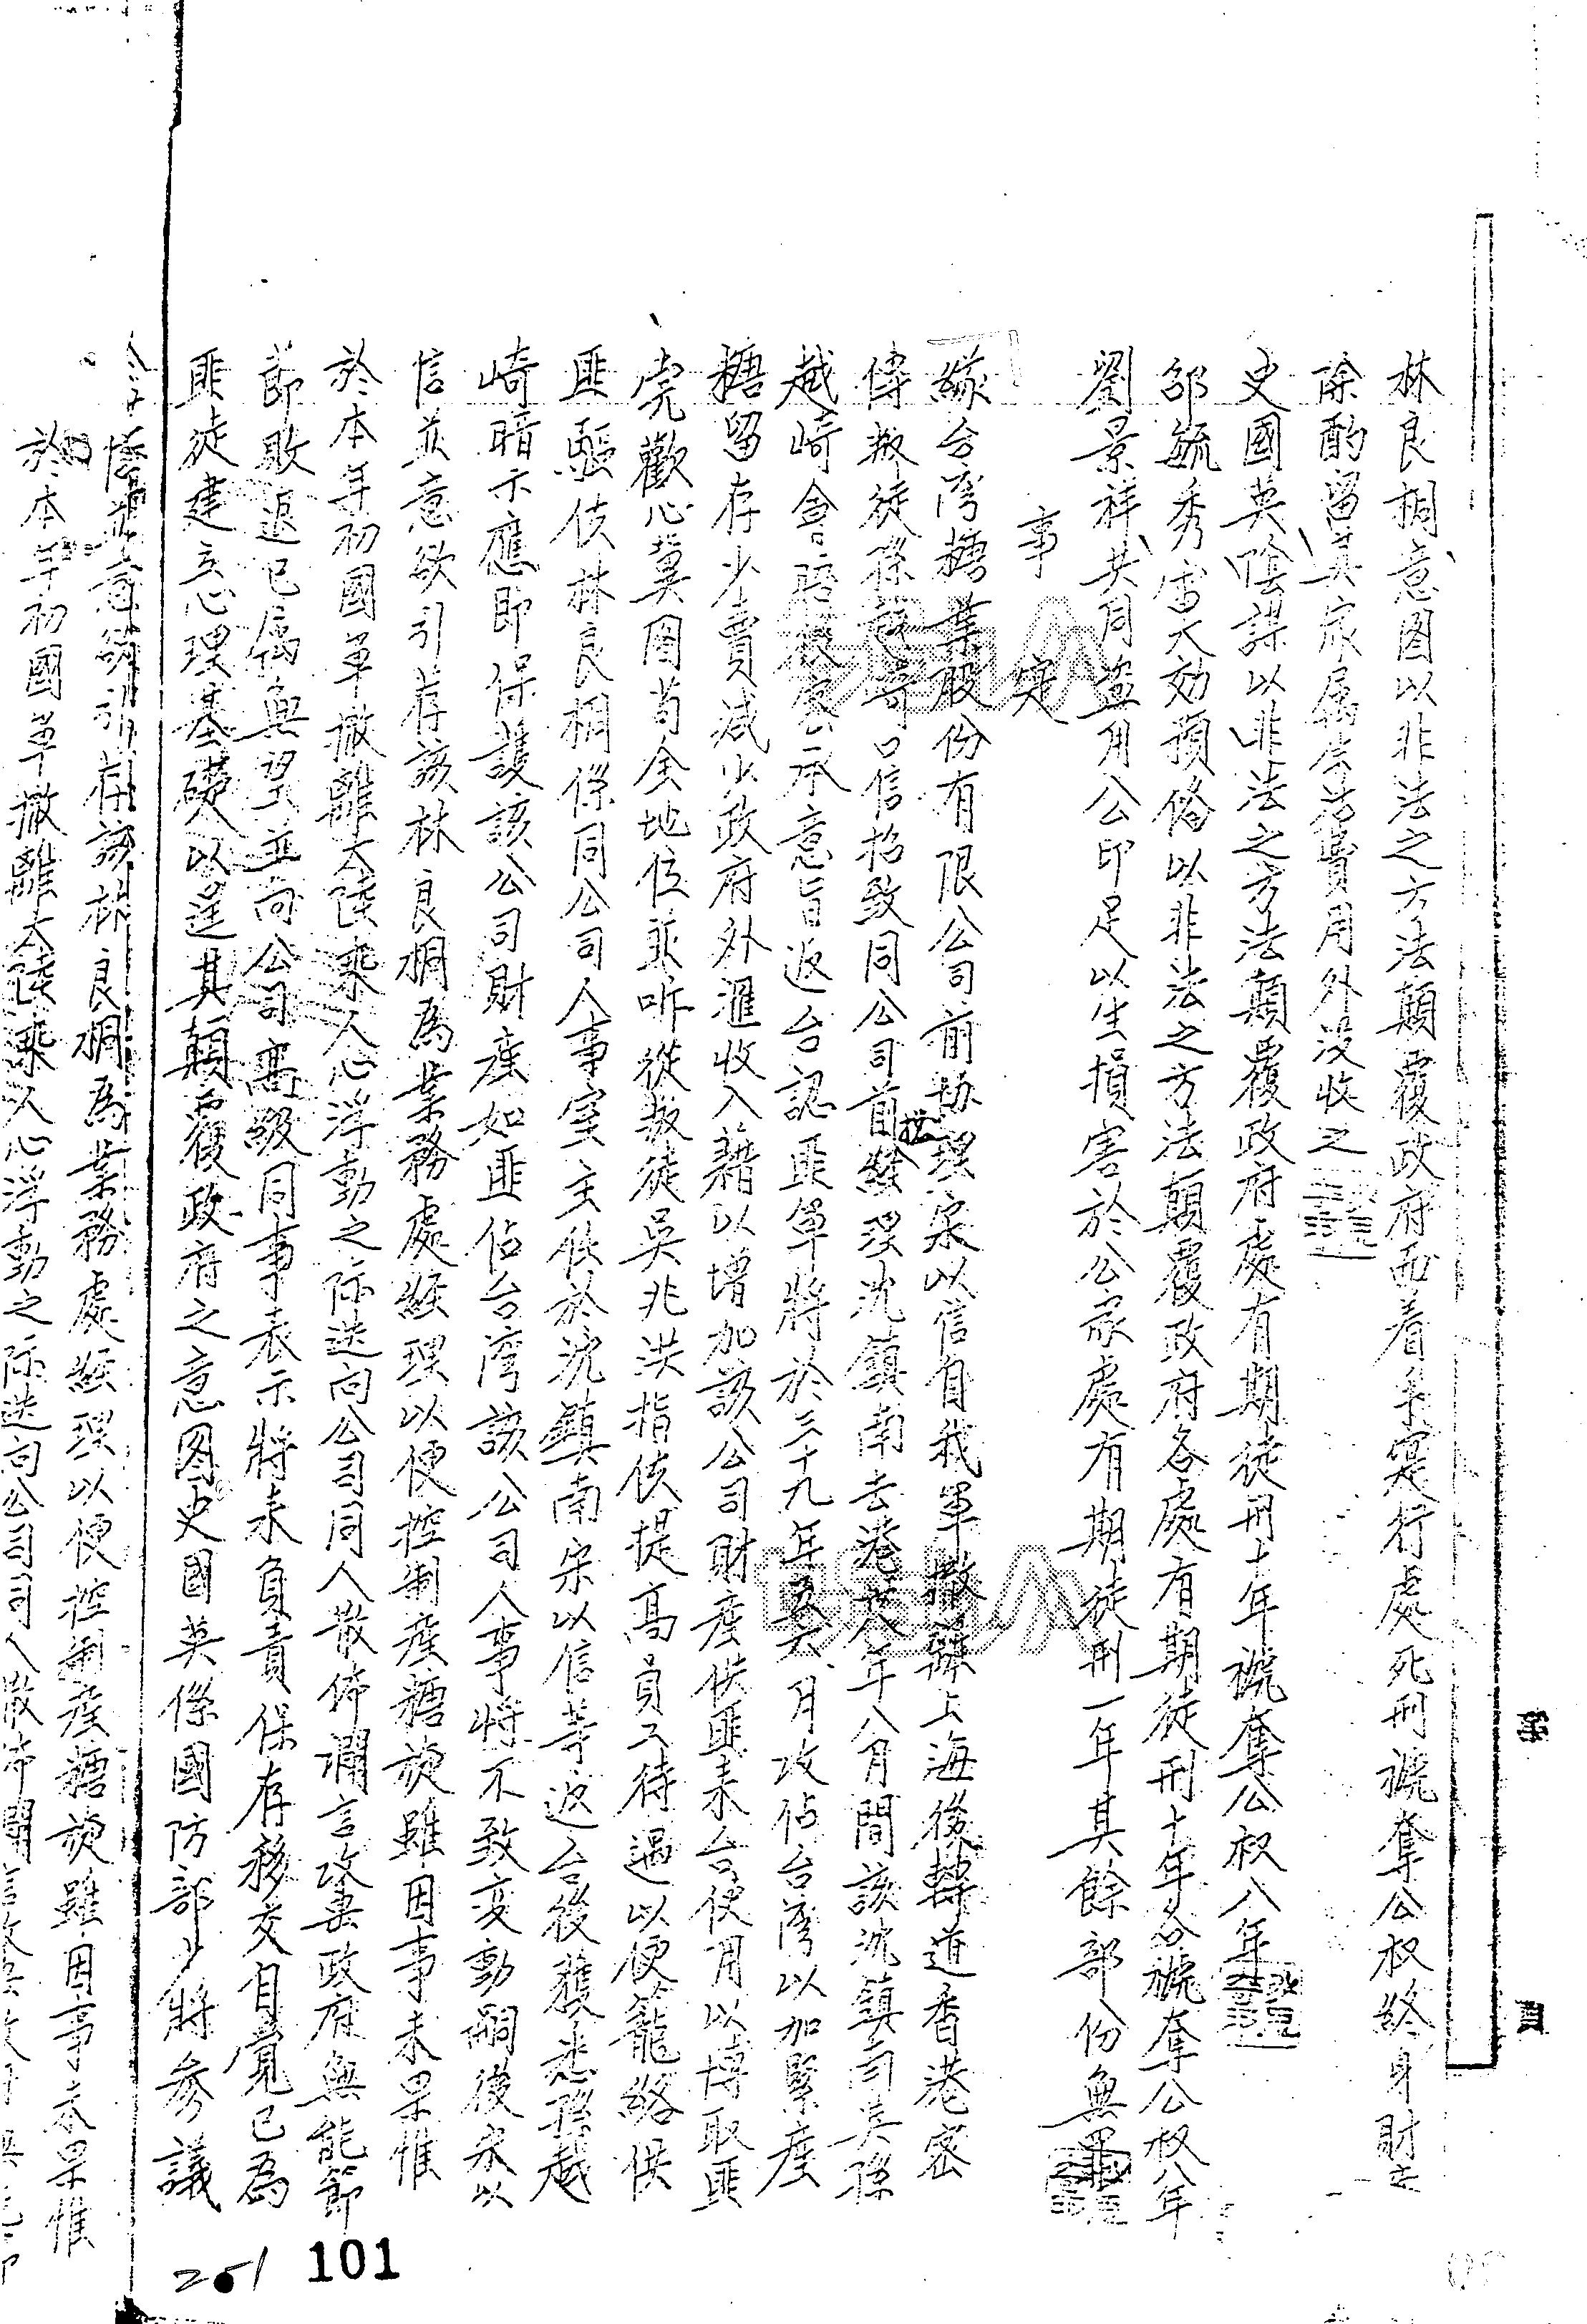 林良桐意图以非法之方法顛覆政府而着手实行處死刑褫奪公权終身財产
除酌留其家属生活費用外沒收之
史國英陰謀以非法之方法顛覆政府處有期徒刑十年褫奪公权八年
邹毓秀雷大効預俻以非法之方法顛覆政府各處有期徒刑十年各褫奪公权八年
劉景祥共同盗用公印足以生損害於公家處有期徒刑一年其餘部份無罪
事 实
緣台湾糖業股份有限公司前协理宋以信自我軍撤離上海後轉道香港密
傳叛徒孫越崎口信招致同公司前總經理沈鎮南去港廿八年八月間該沈鎮南與孫
越崎會晤後密承意旨返台認匪軍將於三十九年五六月攻佔台湾以加緊產
糖留存少賣减少政府外滙收入藉以增加該公司財產供匪來台使用以博取匪
党歡心冀图苟全地位並听從叛徒吳兆洪指使提高員工待遇以便籠絡供
匪驅使林良桐係同公司人事室主任於沈鎮南宋以信等返台後獲悉孫越
崎暗示應即保護該公司財產如匪佔台湾該公司人事將不致变動嗣後宋以
信並意欲引荐該林良桐為業務處經理以便控制產糖旋雖因事未果惟
於本年初國軍撤離大陸乘人心浮動之际迭向公司同人散佈讕言攻訐政府無能節
節敗退已属無望並向公司高級同事表示將来負責保存移交自寬已為
匪徒建立心理基礎以逞其顛覆政府之意图史國英係國防部少將參議
信並意欲引荐該林良桐為業務處經理以便控制產糖旋雖因事未果惟
於本年初國軍撤離大陸乘人心浮動之际迭向公司同人散佈讕言攻
第 頁
251 101